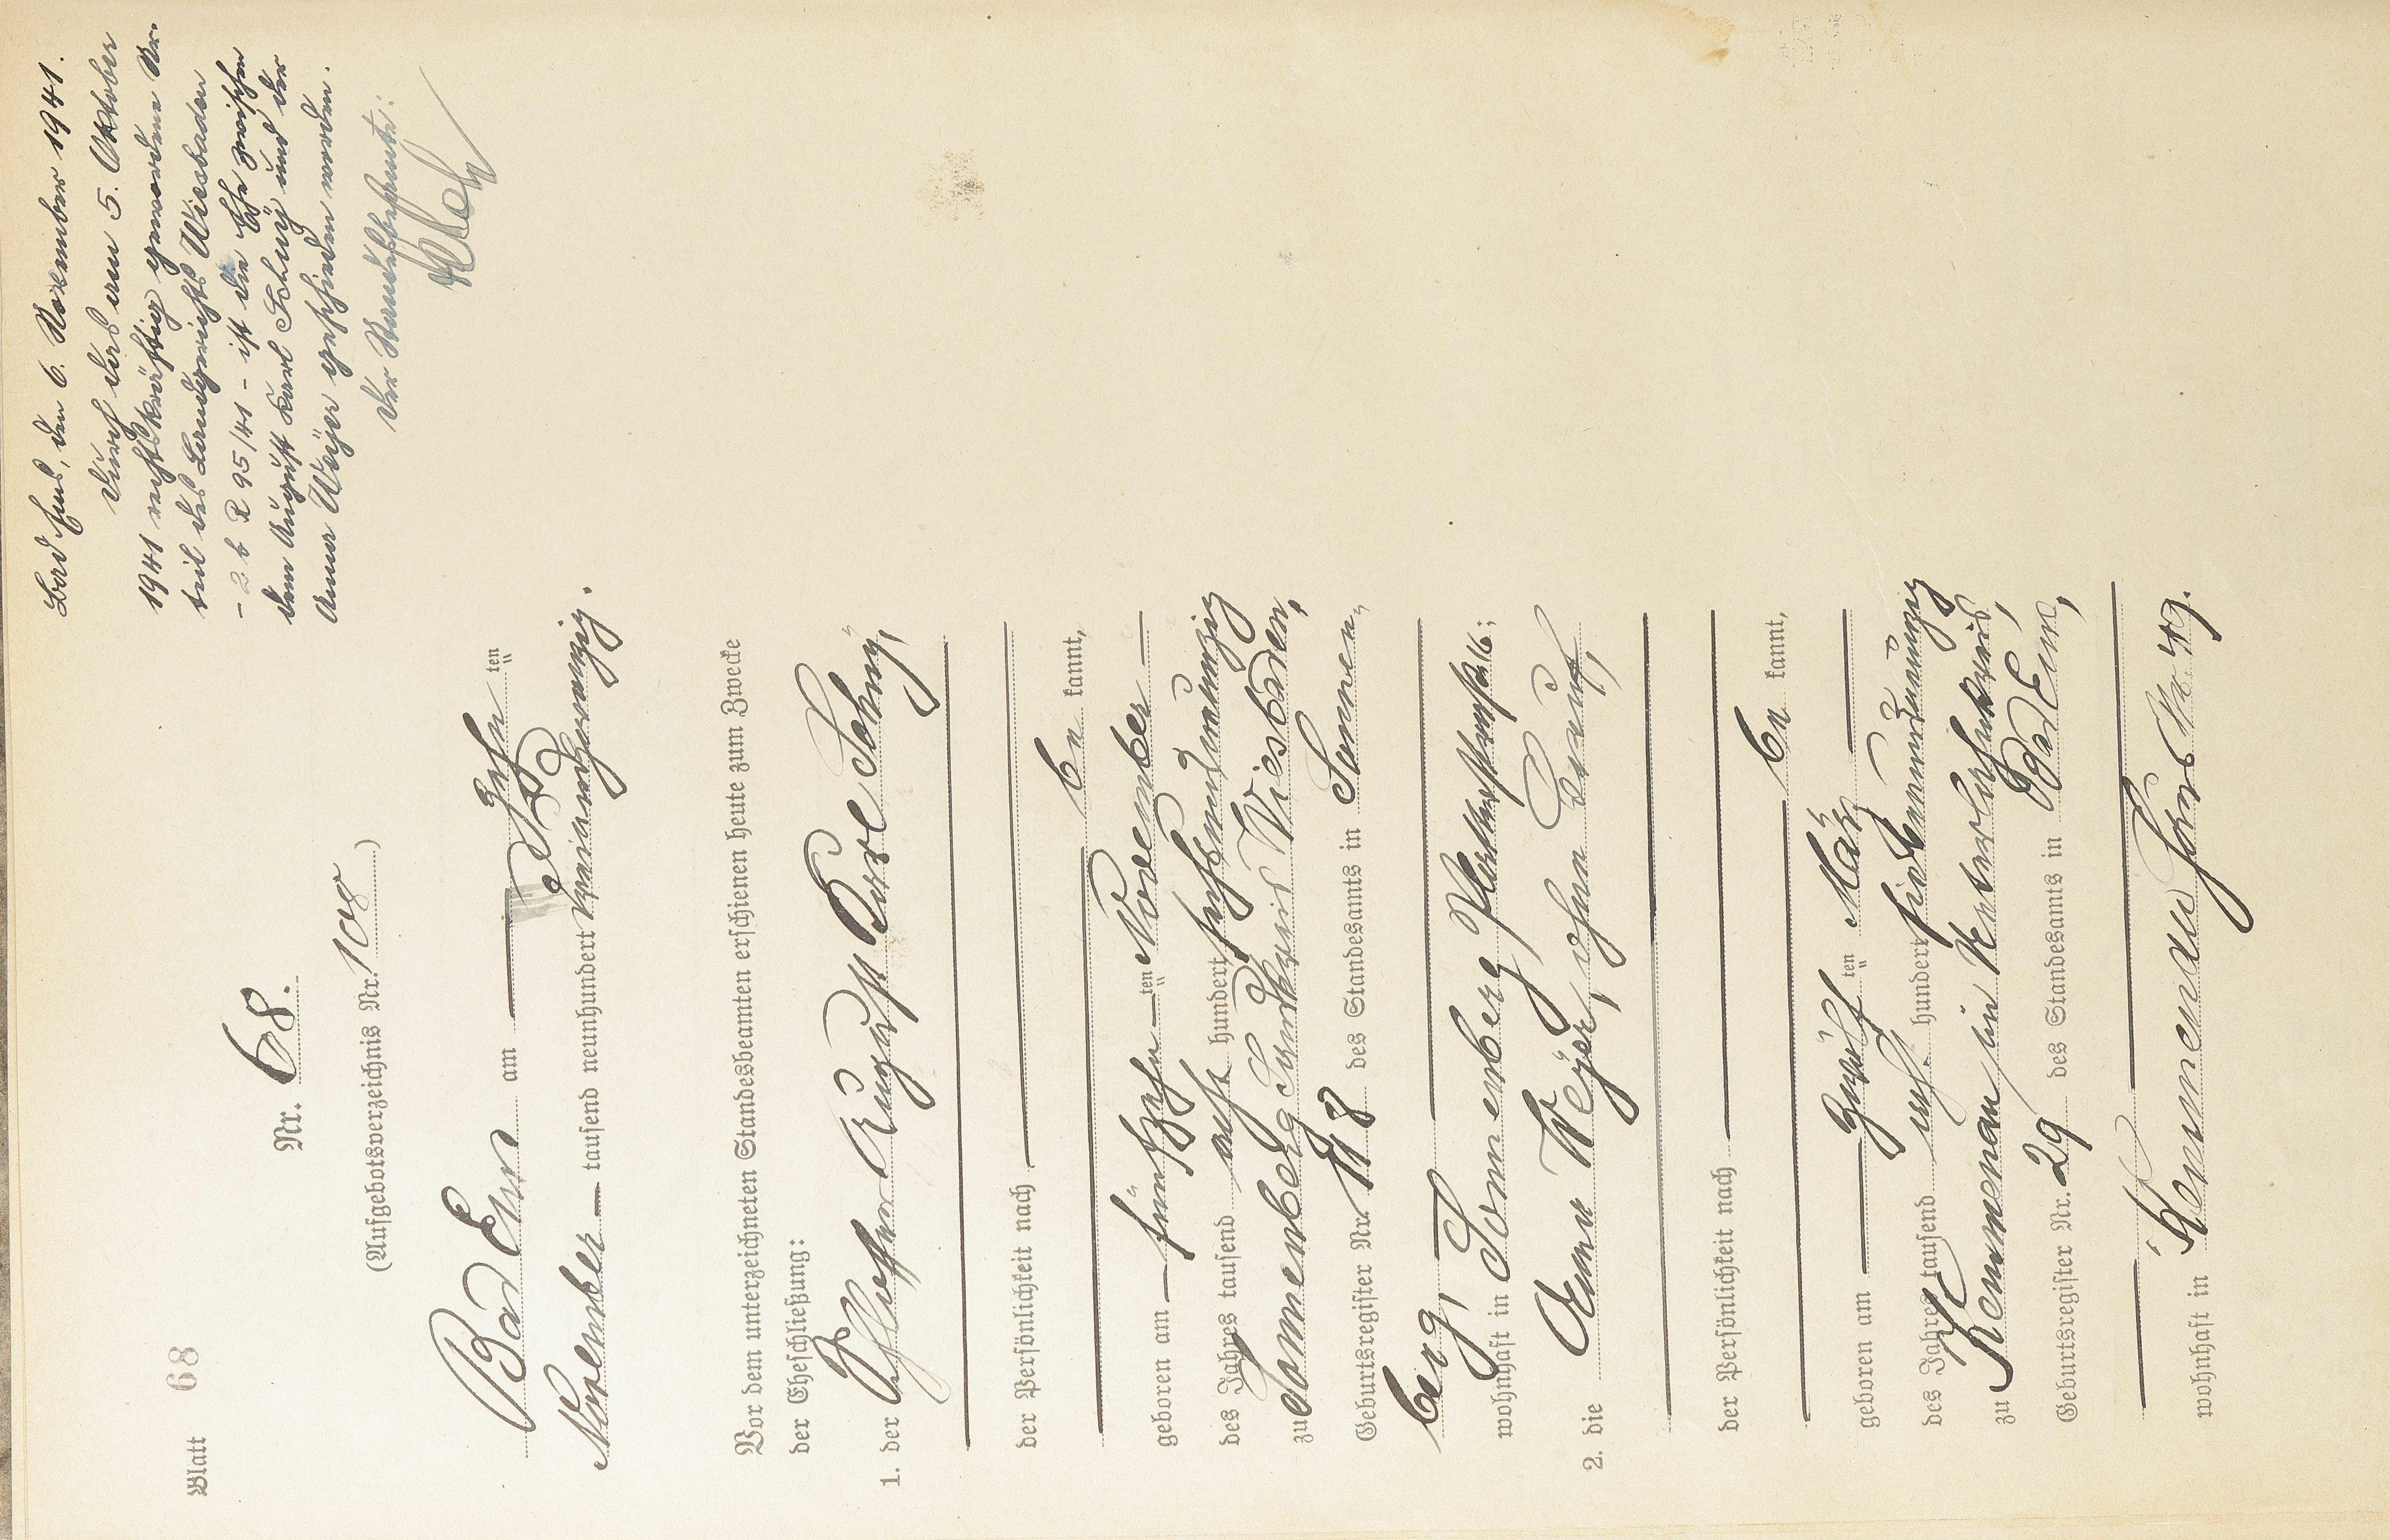 Blatt 68
Nr. 68.
(Aufgebotsverzeichnis Nr. 108)
Bad Ems am zehn ten
November tausend neunhundert zweiundzwanzig.
Vor dem unterzeichneten Standesbeamten erschienen heute zum Zwecke
der Eheschließung:
1. der Schlosser August Karl Schuy,
der Persönlichkeit nach
be kannt,
geboren am fünfzehn ten November
des Jahres tausend acht hundert sechsundneunzig
zu Sonnenberg Landkreis Wiesbaden,
Geburtsregister Nr. 118 des Standesamts in Sonnen-
berg,
wohnhaft in Sonnenberg 16;
2. die Anna Weyer, ohne Beruf,
der Persönlichkeit nach
be kannt,
geboren am zwölf ten März
des Jahres tausend acht hundert siebenundneunzig
zu Kemmenau im Unterlahnkreis,
Geburtsregister Nr. 29 des Standesamts in Bad Ems,
wohnhaft in Kemmenau Haus Nr. 49.
Bad Ems, den 6. November 1941.
Durch das am 5. Oktober
1941 rechtskräftig gewordene Ur-
teil des Landgerichts Wiesbaden
- 2 b R 95/41 - ist die Ehe zwischen
dem August Karl Schuy und der
Anna Weyer geschieden worden.
Der Standesbeamte: